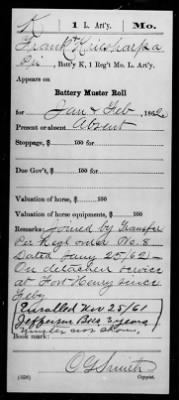 K | 1 L. Art'y. | Mo.
Frank
Pvt., Batt'y K, 1 Reg't Mo. L. Art'y.
Appears on
Battery Muster Roll
for Jan & Feb, 1862.
Present or absent Absent
Stoppage, $ 100 for
Due Gov't, $ 100 for
Valuation of horse, $ 100
Valuation of horse equipments, $ 100
Remarks: Joined by Transfer
Per Regl order No. 8
Dated Jany 25/62 -
On detached service
at Fort Henry since
Feby
Enrolled Nov 25/61
Jefferson Bks 3 years
Book mark:
Smith
Copyist.